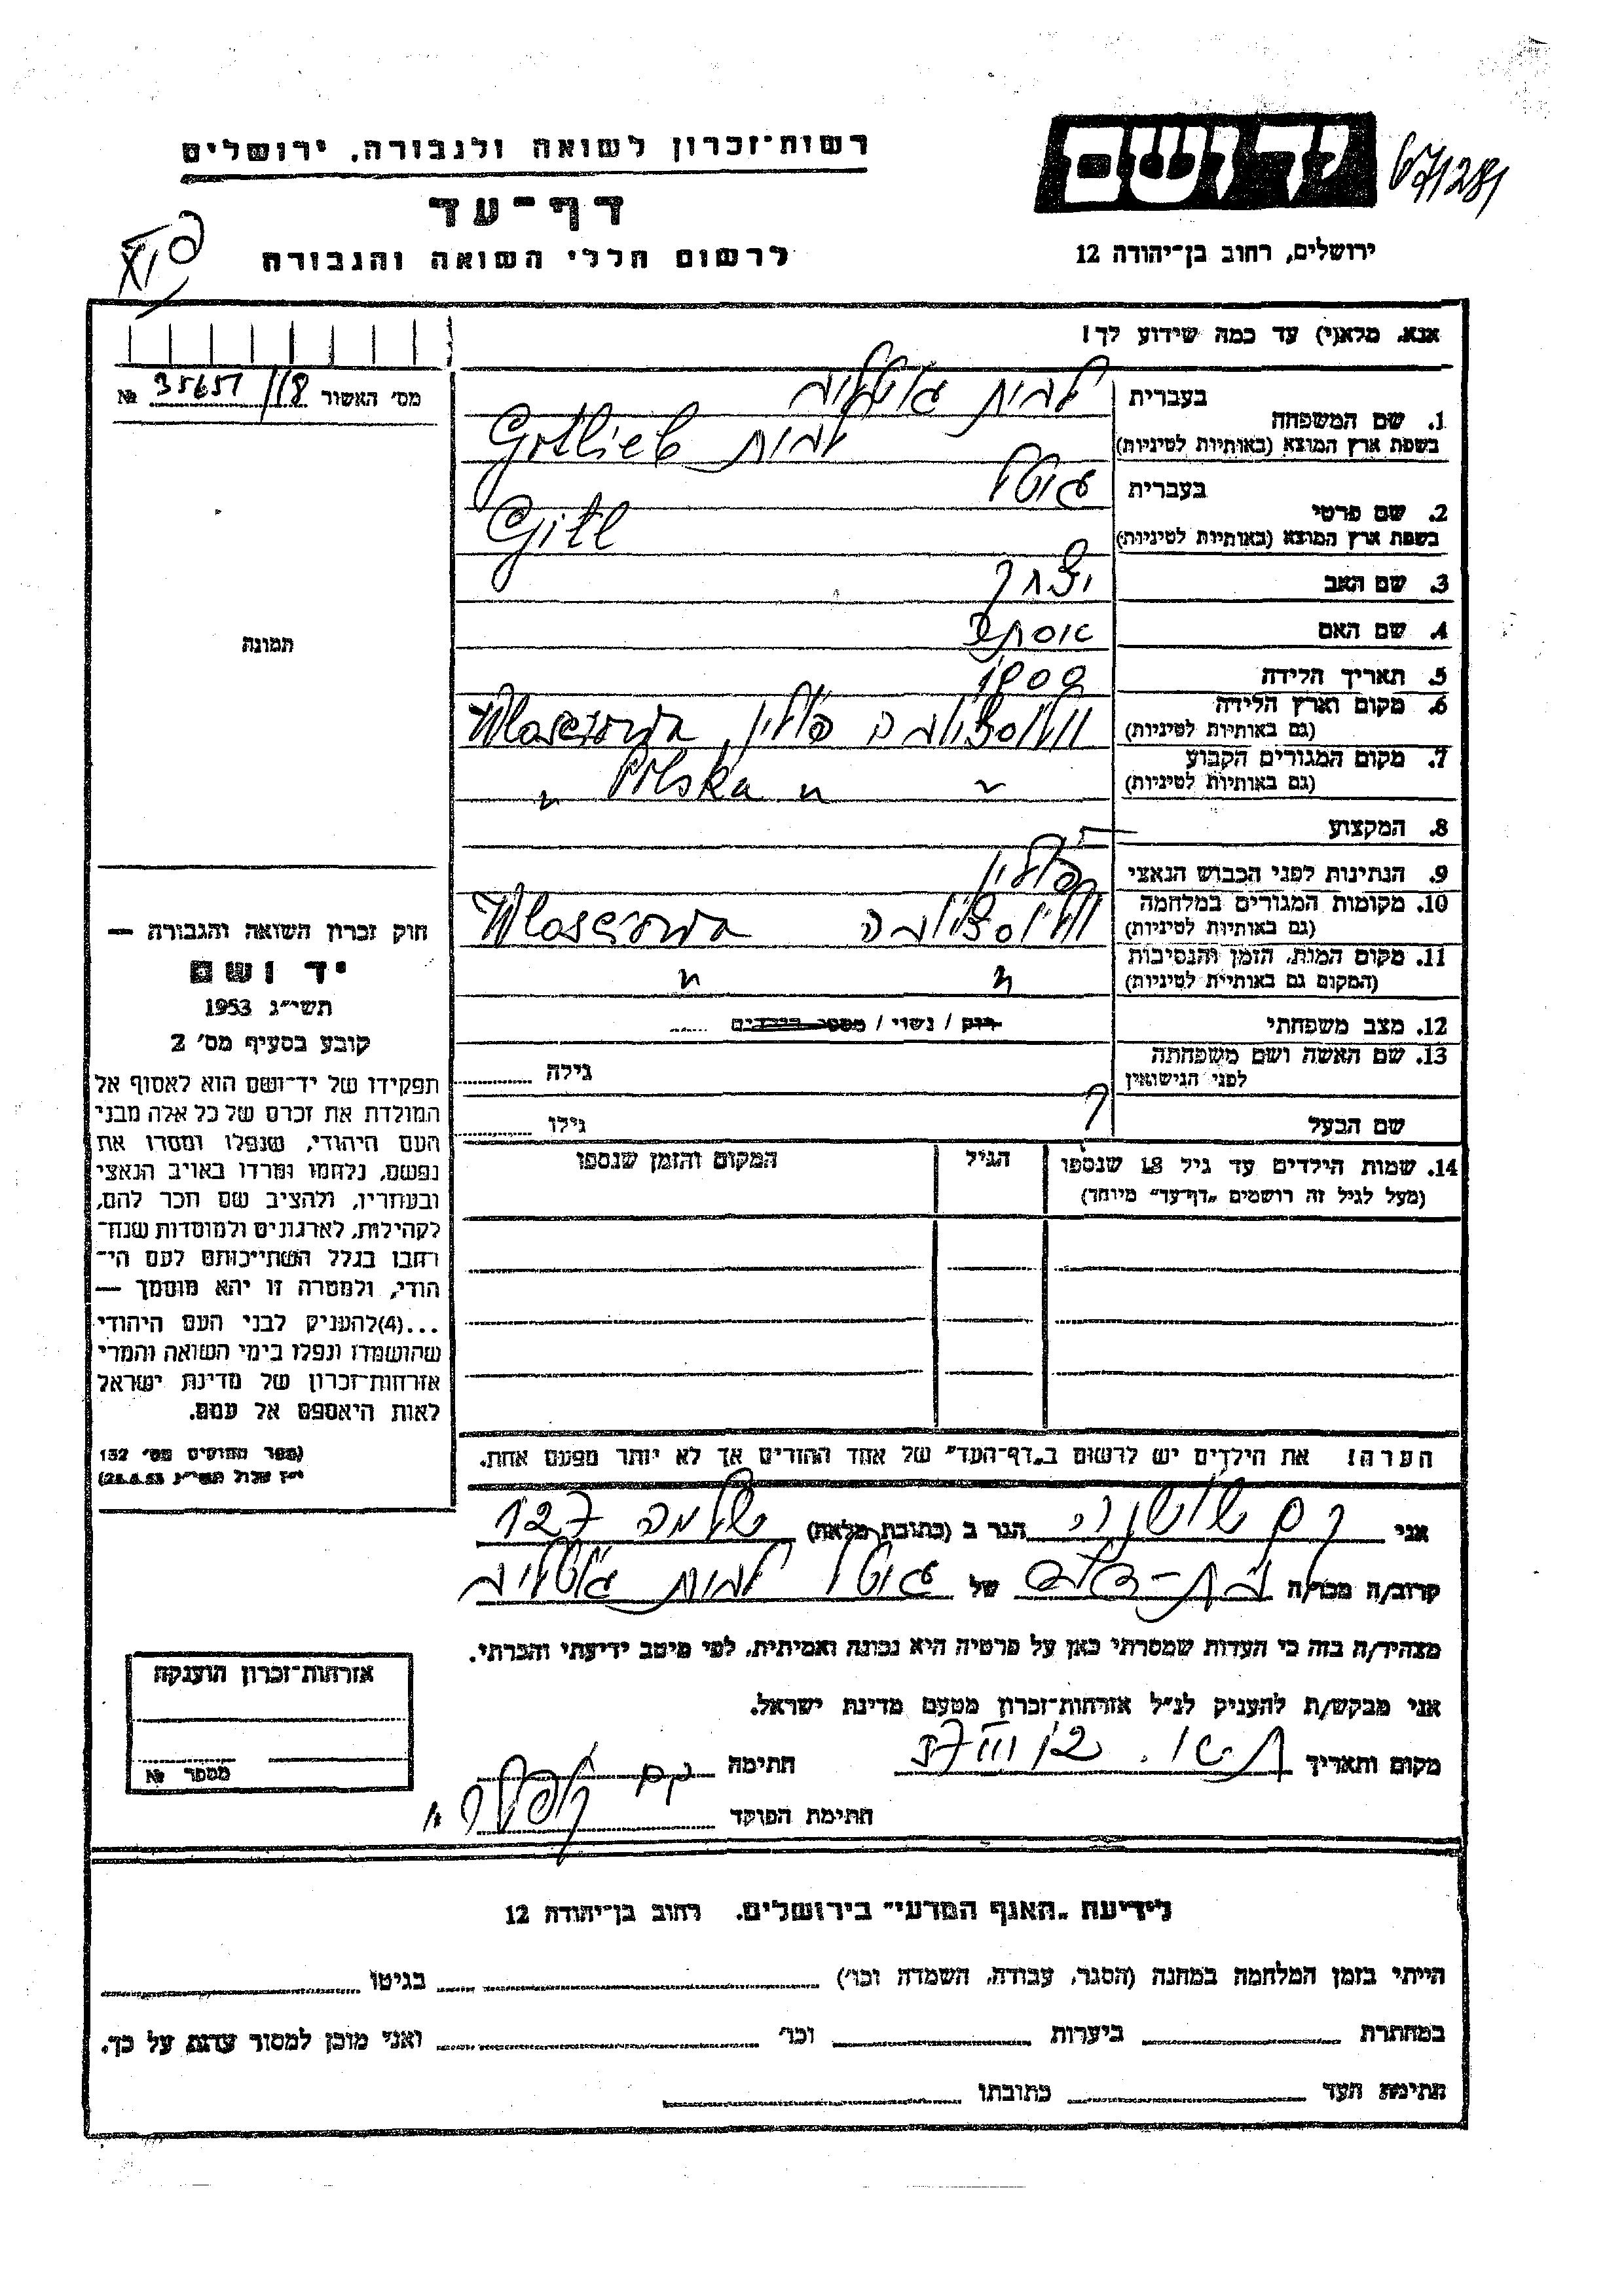 רשות־זכרון לשואה ולגבורה, ירושלים
יד ושם
דף־עד
לרשום חללי השואה והגבורה
ירושלים, רחוב בן־יהודה 12
אנא, מלא(י) עד כמה שידוע לך!
מס' האשור 35651/118 №
1. שם המשפחה
בעברית לבית גוטליב
בשפת ארץ המוצא (באותיות לטיניות) לבית Gottlieb
2. שם פרטי
בעברית גיטל
בשפת ארץ המוצא (באותיות לטיניות) Gitl
3. שם האב יצחק
4. שם האם אסתר
5. תאריך הלידה 1900
6. מקום וארץ הלידה
(גם באותיות לטיניות) פולין, Wloszczowa
7. מקום המגורים הקבוע
(גם באותיות לטיניות) " " Polska "
8. המקצוע
9. הנתינות לפני הכבוש הנאצי פולין
10. מקומות המגורים במלחמה
(גם באותיות לטיניות) Wloszczowa
11. מקום המות, הזמן והנסיבות
(המקום גם באותיות לטיניות) " "
12. מצב משפחתי רוק / נשוי / מספר הילדים
13. שם האשה ושם משפחתה
לפני הנישואין גילה
שם הבעל ? גילו
14. שמות הילדים עד גיל 18 שנספו
(מעל לגיל זה רושמים "דף־עד" מיוחד)
הגיל
המקום והזמן שנספו
הערה! את הילדים יש לרשום ב"דף־העד" של אחד ההורים אך לא יותר מפעם אחת.
תמונה
חוק זכרון השואה והגבורה —
יד ושם
תשי"ג 1953
קובע בסעיף מס' 2
תפקידו של יד־ושם הוא לאסוף אל
המולדת את זכרם של כל אלה מבני
העם היהודי, שנפלו ומסרו את
נפשם, נלחמו ומרדו באויב הנאצי
ובעוזריו, ולהציב שם וזכר להם,
לקהילות, לארגונים ולמוסדות שנח־
רבו בגלל השתייכותם לעם הי־
הודי, ולמטרה זו יהא מוסמך —
...(4)להעניק לבני העם היהודי
שהושמדו ונפלו בימי השואה והמרי
אזרחות־זכרון של מדינת ישראל
לאות היאספם אל עמם.
(ספר החוקים מס' 132
י"ז אלול תשי"ג 28.8.53)
אני רם שושנה הגר ב (כתובת מלאה) שלמה 127
קרוב/ה מכר/ה של גיטל לבית גוטליב
מצהיר/ה בזה כי העדות שמסרתי כאן על פרטיה היא נכונה ואמיתית, לפי מיטב ידיעתי והכרתי.
אני מבקש/ת להעניק לנ"ל אזרחות־זכרון מטעם מדינת ישראל.
מקום ותאריך חתימה
חתימת הפוקד
אזרחות־זכרון הוענקה
מספר №
לידיעת "האגף המדעי" בירושלים, רחוב בן־יהודה 12
הייתי בזמן המלחמה במחנה (הסגר, עבודה, השמדה וכו') בגיטו
במחתרת ביערות וכו' ואני מוכן למסור עדות על כך.
חתימת העד כתובתו